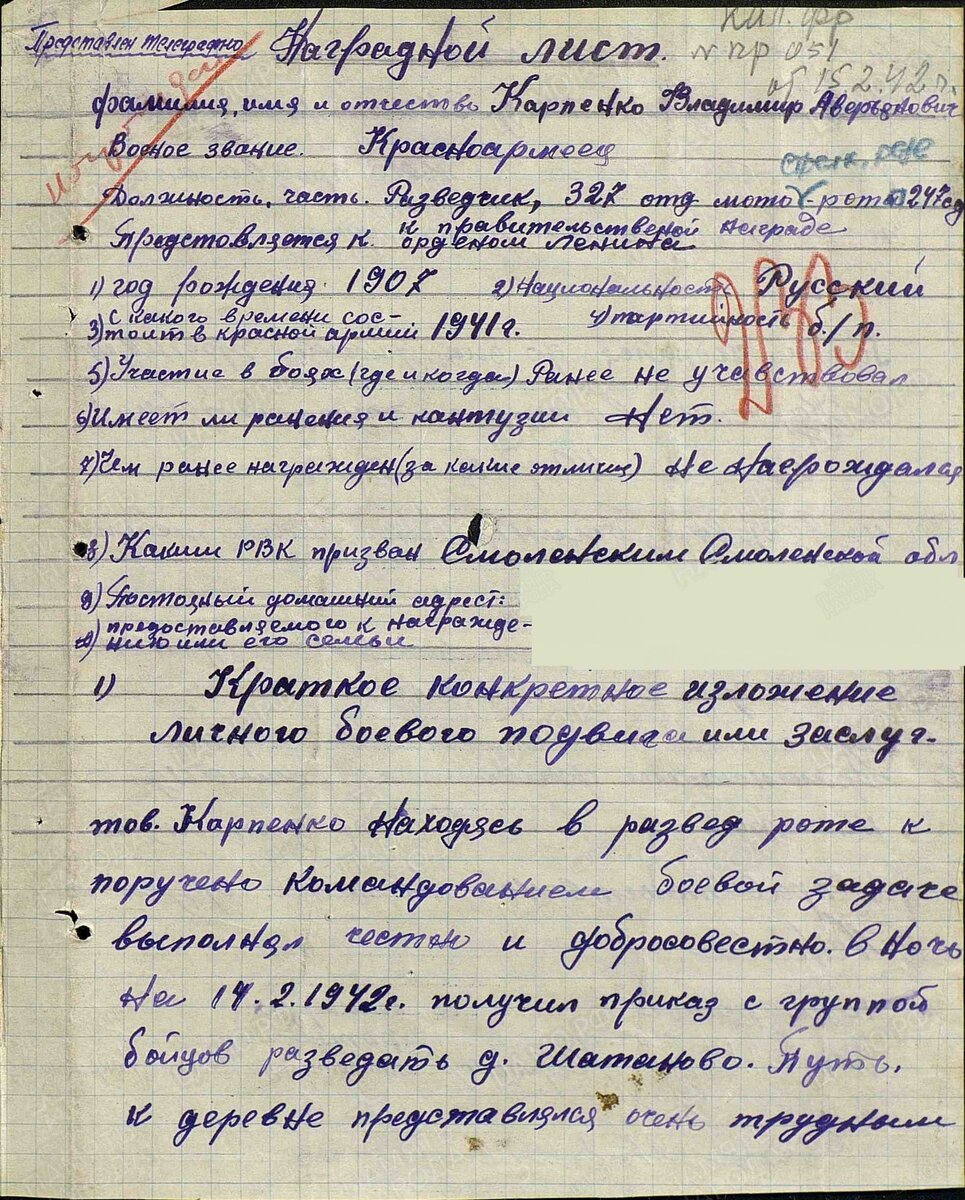 Представлен телеграфно
Наградной лист.
Кал. фр
№ пр 051
об 15.2.42г.
фамилия, имя и отчество Карпенко Владимир Аверьянович
Военое звание. Красноармеец
Должность, часть. Разведчик, 327 отд мото рота 247сд
Предстовляется к. к правительственой награде
орденом Ленина
1) год рождения. 1907 2) Национальность Русский
3) с какого времени сос-
тоит в красной армии 1941г. 4) партийность б/п.
5) Участие в боях (где и когда) Ранее не учавствовал
6) Имеет ли ранения и кантузии Нет.
7) Чем ранее награжден (за какие отличия) Не Награждался
8) Каким РВК призван Смоленским Смоленской обл
9) Постояный домашний адрест:
предоставляемого к награжде-
нию или его семьи
1) Краткое конкретное изложение
личного боевого подвига или заслуг.
тов. Карпенко Находясь в развед роте к
поручено командованием боевой задаче
выполнял честно и добросовестно. В Ночь
На 14.2.1942г. получил приказ с группой
бойцов разведать д. Шатаново. Путь.
к деревне представлялся очень трудным